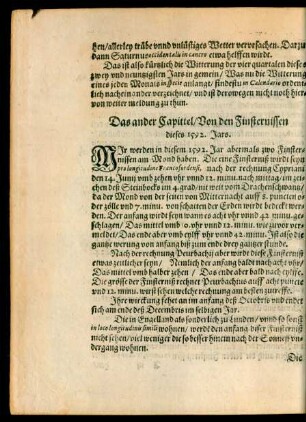 hen/ allerley trübe vnnd vnlüstiges Wetter vervrsachen. Darzu
dann Saturnus occidentalis in cancro etwa helffen wirdt.
Das ist also fürnlich die Witterung der vier quartalen dieses
zwey vnd neuntzigsten Jars in gemein/ Was nu die Witterung
eines jeden Monats in specie anlangt/ findestu in Calendario ordent-
lich nach ein ander verzeichnet/ vnd ist derowegen nicht noch hier-
von weiter meldung zu thun.
Das ander Capittel/ Von den Finsternissen
dieses 1592. Jars.
WJr werden in diesem 1592. Jar abermals zwo Finster-
nissen am Mond haben. Die eine Finsternuß wirdt seyn
pro longitudine Francofordensi, nach der rechnung Cypriani
den 14. Junij vmb zehen vhr vnnd 12. minu. nach mittag/ im zey-
chen deß Steinbocks im 4. grad/ nit weit vom Drachenschwantz/
da der Mond von der seiten von Mitternacht auff 8. puncten o-
der zölle vnd 7. minu. von schatten der Erden wurdt bedeckt wer-
den. Der anfang wurdt seyn wann es acht vhr vnnd 42. minu. ge-
schlagen/ Das mittel vmb 10. vhr vnnd 12. minu. wie zuvor ver-
meldet/ Das ende aber vmb eylff vhr vnnd 42. minu. Ist also die
gantze werung von anfang biß zum ende drey gantzer stunde.
Nach der rechnung Peurbachij aber wurde diese Finsternuß
etwas zeitlicher seyn/ Nemlich der anfang bald nach acht vhr/
Das mittel vmb halber zehen/ Das ende aber bald nach eylffe.
Die grösse der Finsternuß rechnet Peurbachius auff acht punct
vnnd 12. minu. wirdt sehen welche rechnung am besten zutreffe.
Jhre wirckung fehet an im anfang deß Octobris vnd endet
sich am ende deß Decembris im selbigen Jar.
Die in Engelland als sonderlich zu Lunden/ vnnd so sonst
in loco longitudinis similis wohnen/ werdt den anfang diser Finsternuß
nicht sehen/ viel weniger die so besser hinein nach der Sonnen vn-
dergang wohnen.
Die